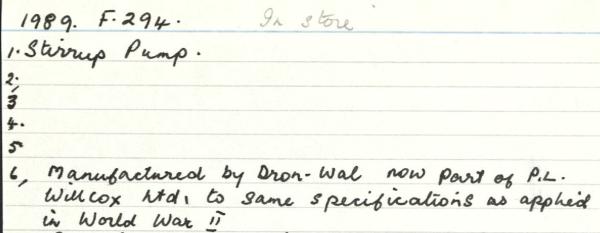 1989. F.294. In store
1. Stirrup Pump.
2.
3
4.
5
6, Manufactured by Dron-Wal now part of P.L.
Willcox Ltd, to same specifications as applied
in World War II